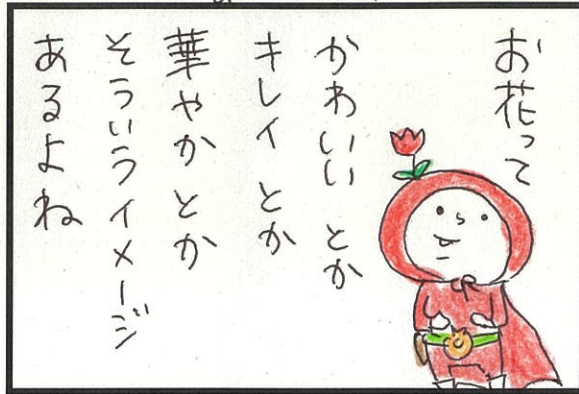 お花って
かわいい とか
キレイ とか
華やか とか
そういうイメージ
あるよね